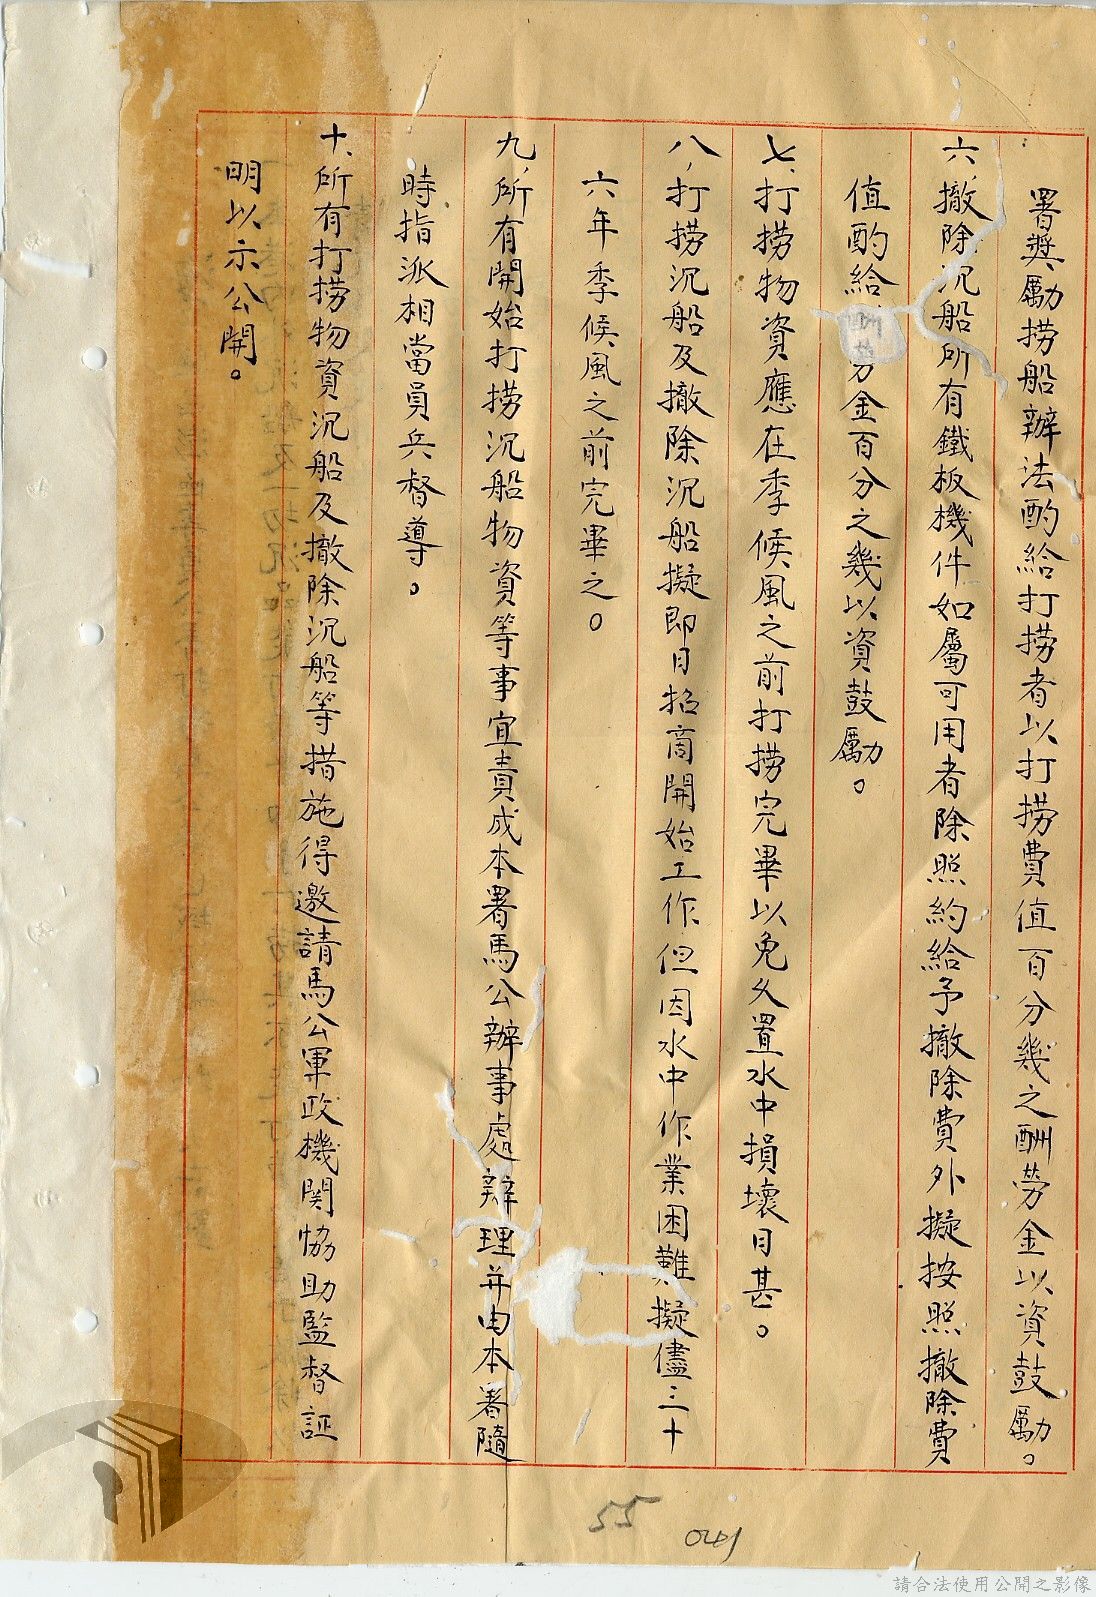 署獎勵撈船辦法酌給打撈者以打撈費值百分幾之酬勞金以資鼓勵。
六、撤除沉船所有鐵板機件如屬可用者除照約給予撤除費外擬按照撤除費
值酌給勞金百分之幾以資鼓勵。
七、打撈物資應在季候風之前打撈完畢以免久置水中損壞日甚。
八、打撈沉船及撤除沉船擬即日招商開始工作但因水中作業困難擬儘三十
六年季候風之前完畢之。
九、所有開始打撈沉船物資等事宜責成本署馬公辦事處辦理并由本署隨
時指派相當員兵督導。
十、所有打撈物資沉船及撤除沉船等措施得邀請馬公軍政機関恊助監督証
明以示公開。
55
041
請合法使用公開之影像